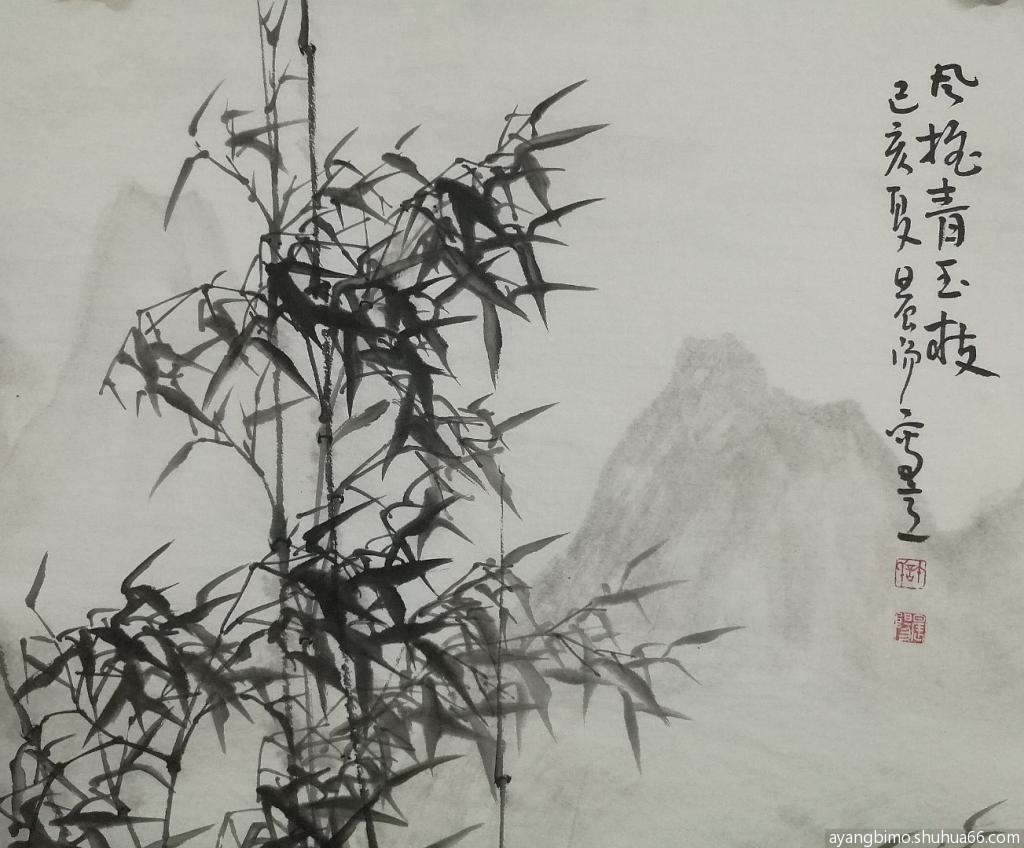 风摇青玉枝
己亥夏晨阳写意
ayangbimo.shuhua66.com